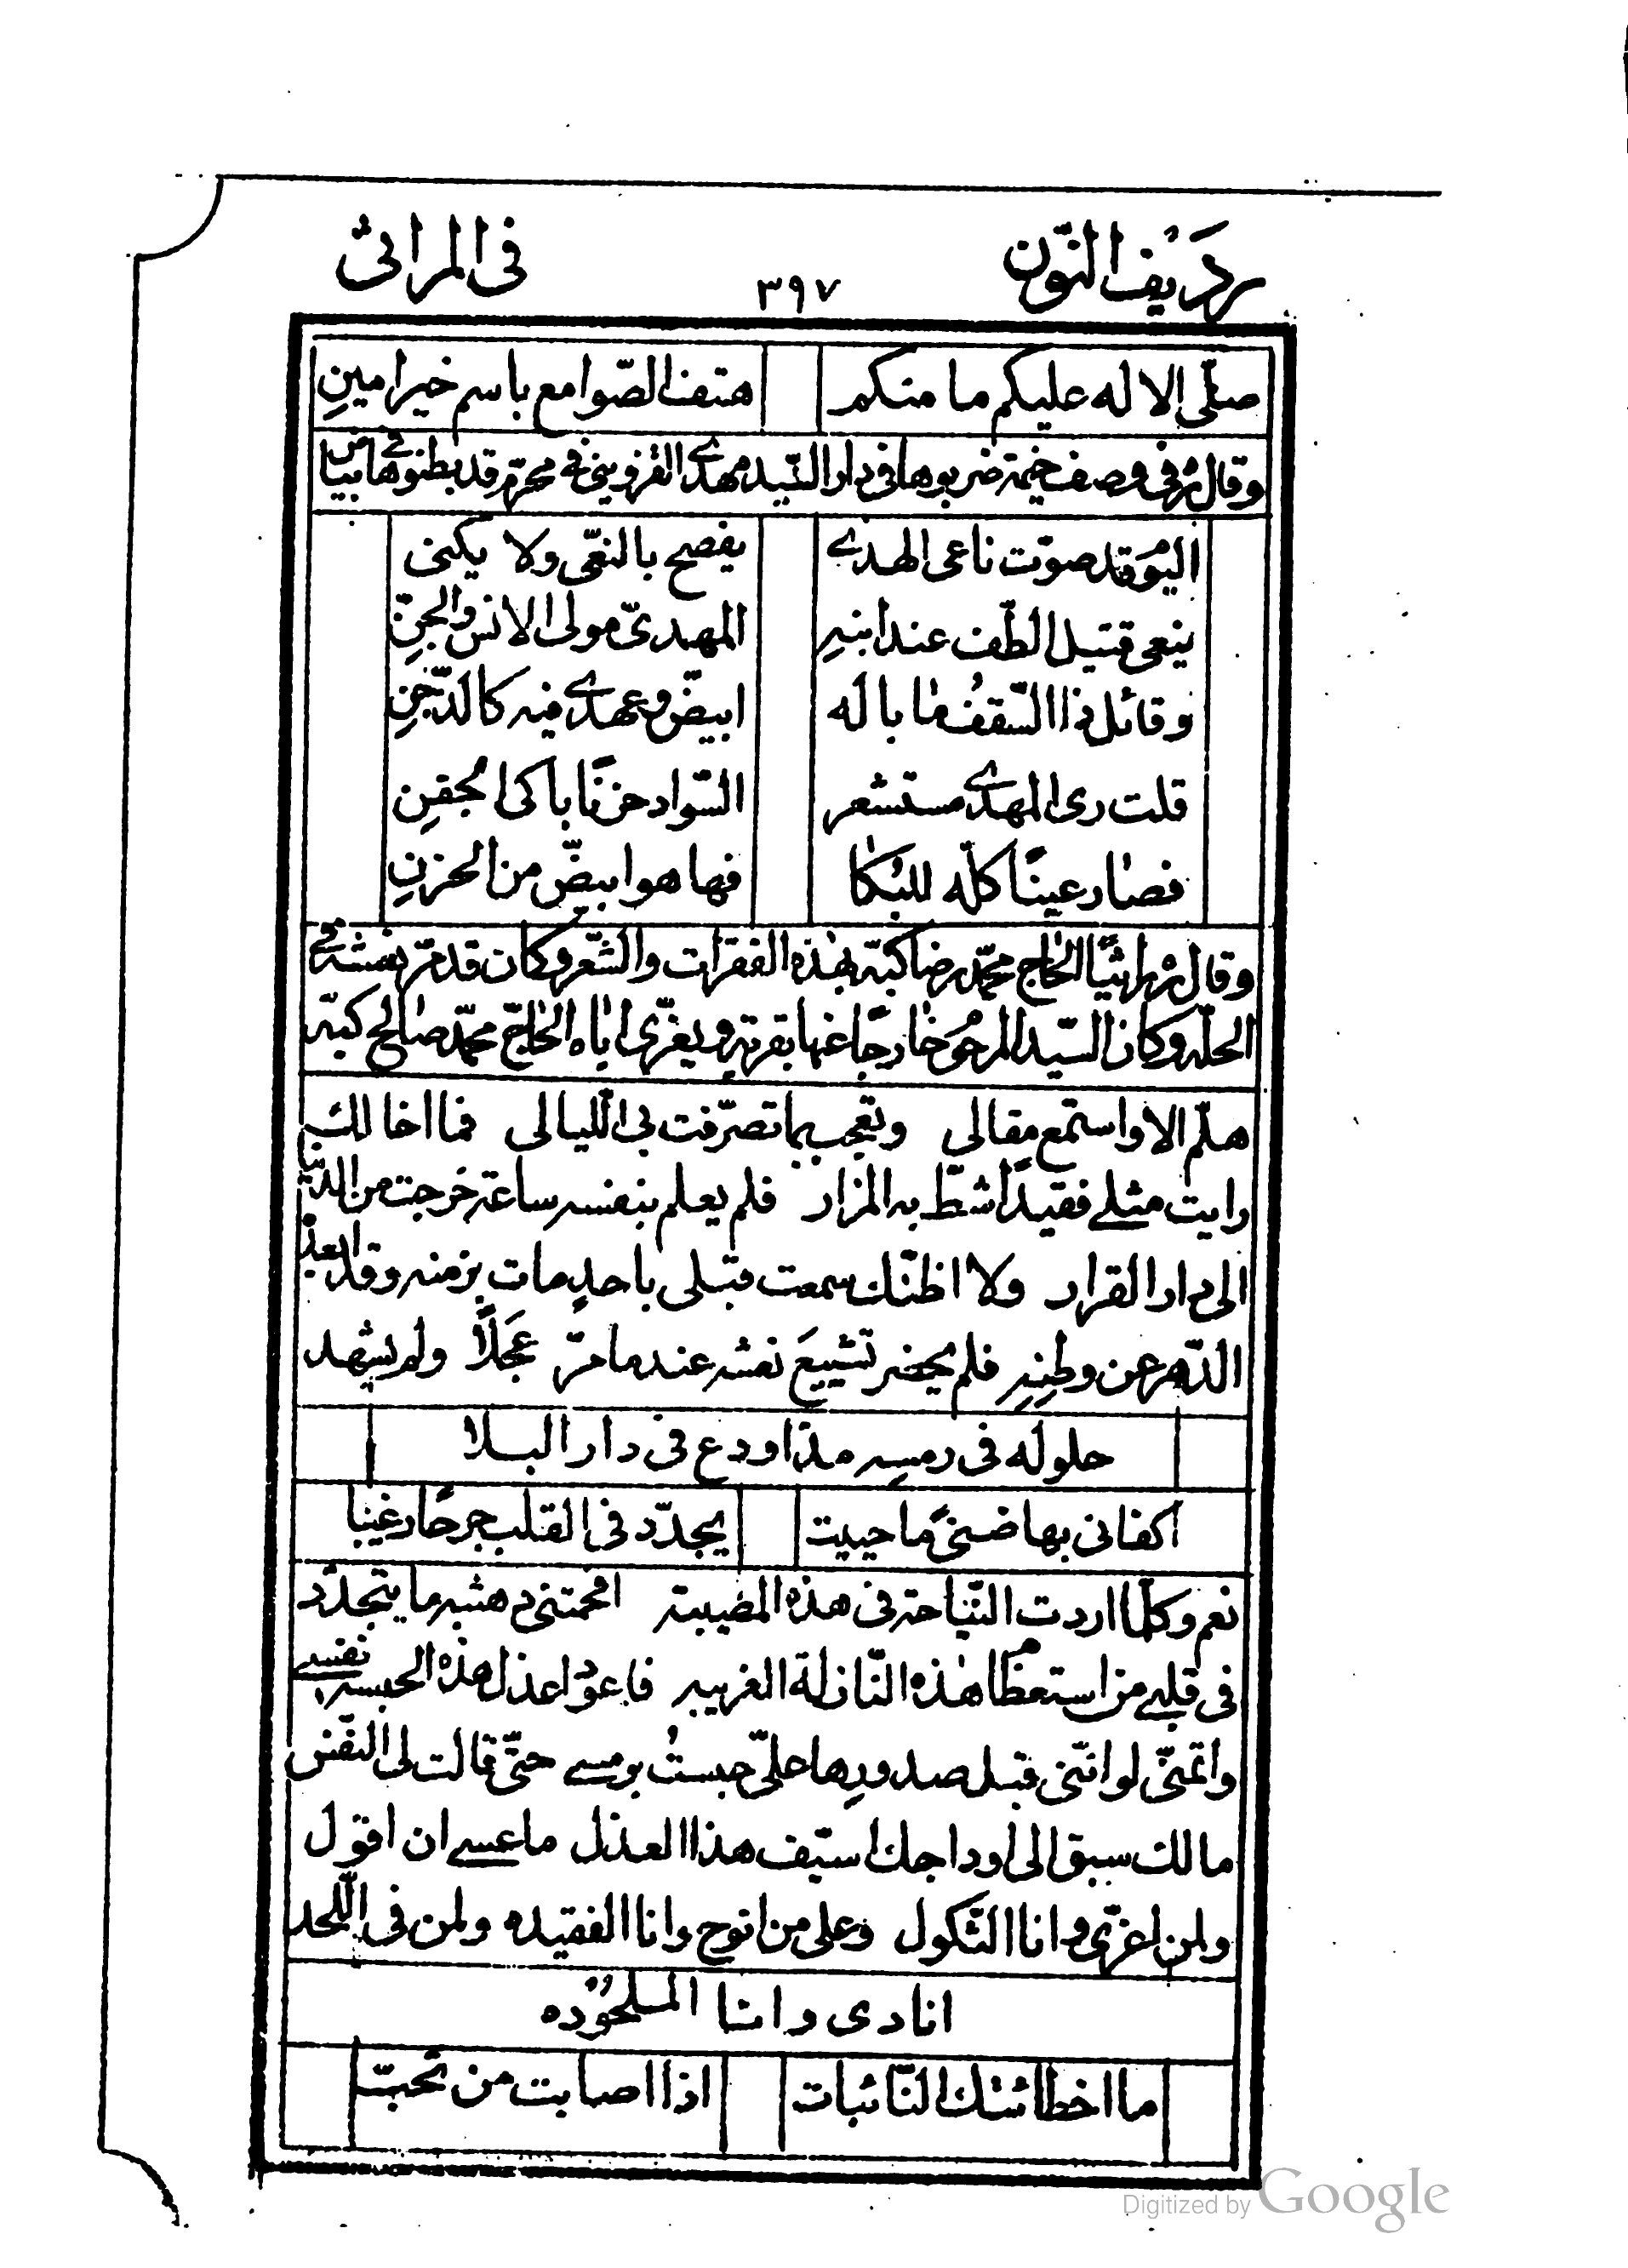 رديف النّون
٣٩٧
فى المراثى
صلّى الاله عليكم ما منكم هتف الصّوامع باسم خير امينِ
وقال ره فى وصف خيمة ضربوها فى دار السّيد مهدى القزوينى فى محرّم وقد بطنوها فى بياض
اليوم قد صوّت ناعى الهدى يفصح بالنعى ولا يكنى
ينعى قتيل الطّف عند ابنهِ المهدىّ مولى الانس والجنّ
وقائل ذا السّقفُ ما باله ابيضّ وعهدى فيه كالدّجنِ
قلت رى المهدى مستشعر السّواد حزنًا باكى الجفنِ
فصار عينًا كلّه للبُكا فها هو ابيضّ من الحزنِ
وقال ره راثيًا الحاج محمّد رضا كبّه بهذه الفقرات والشّعر وكان قد مرّ بنعشه فى
الحلّه وكان السّيد المرحوم خارجًا عنها بقريةٍ ويعزّى اباه الحاجّ محمّد صالح كبّه
هلّم الا واستمع مقالى وتعجب بما تصرّفت بى اللّيالى فما اخالك
رايت مثلى فقيدًا شطّ به المزار فلم يعلم بنفسه ساعة خرجت من الدّنيا
الى دار القرار ولا اظنّك سمعت قبلى باحدٍ مات بزمنه وقد ابعد
الدّهر عن وطنِهِ فلم يحضر تشييعَ نعشه عند ما مرّ عَجَلًا ولم يشهد
حلوله فى رمسِه مذ اودع فى دار البلا
اكفانى بها ضنىً ما حييت يجدّد فى القلب جرحًا رغيبا
نعم وكلّما اردت النّياحة فى هذه المصيبة افحمتنى دهشه ما يتجدّد
فى قلبى من استعظام هذه النّازلة الغريبه فاعود اعذل هذه الحبسه نفسى
واتمنّى لو انّنى قبل صدورها حلّى حبستُ برمسى حتّى قالت لى النّفس
مالك سبق الى اوداجك سيف هذا العذل ما عسى ان اقول
ولمن اعزّى وانا الثّكول وعلى من انوح وانا الفقيده ولمن فى اللّحد
انادى وانا الملحوُده
ما اخطائتك النّائبات اذا اصابت من تحبّ
Digitized by Google